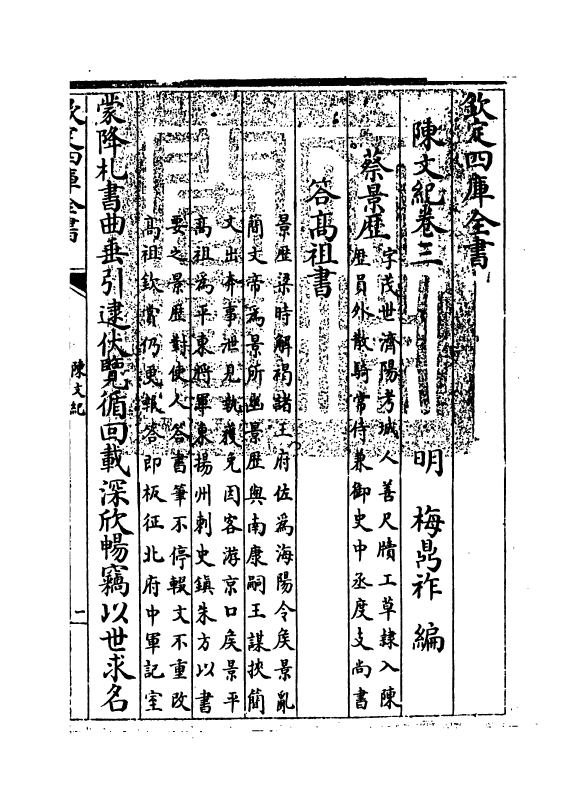 欽定四庫全書
陳文紀卷三
明 梅鼎祚 編
蔡景歷
字茂世濟陽考城人善尺牘工草隷入陳
歷員外散騎常侍兼御史中丞度支尚書
答高祖書
景歷梁時解褐諸王府佐爲海陽令矦景亂
簡文帝爲景所幽景歷與南康嗣王謀挾簡
文出奔事泄見執獲免因客游京口矦景平
高祖爲平東將軍東揚州刺史鎮朱方以書
要之景歷對使人答書筆不停輟文不重改
高祖欽賞仍更報答即板征北府中軍記室
蒙降札書曲垂引逮伏覽循回載深欣暢竊以世求名
欽定四庫全書
陳文紀
一